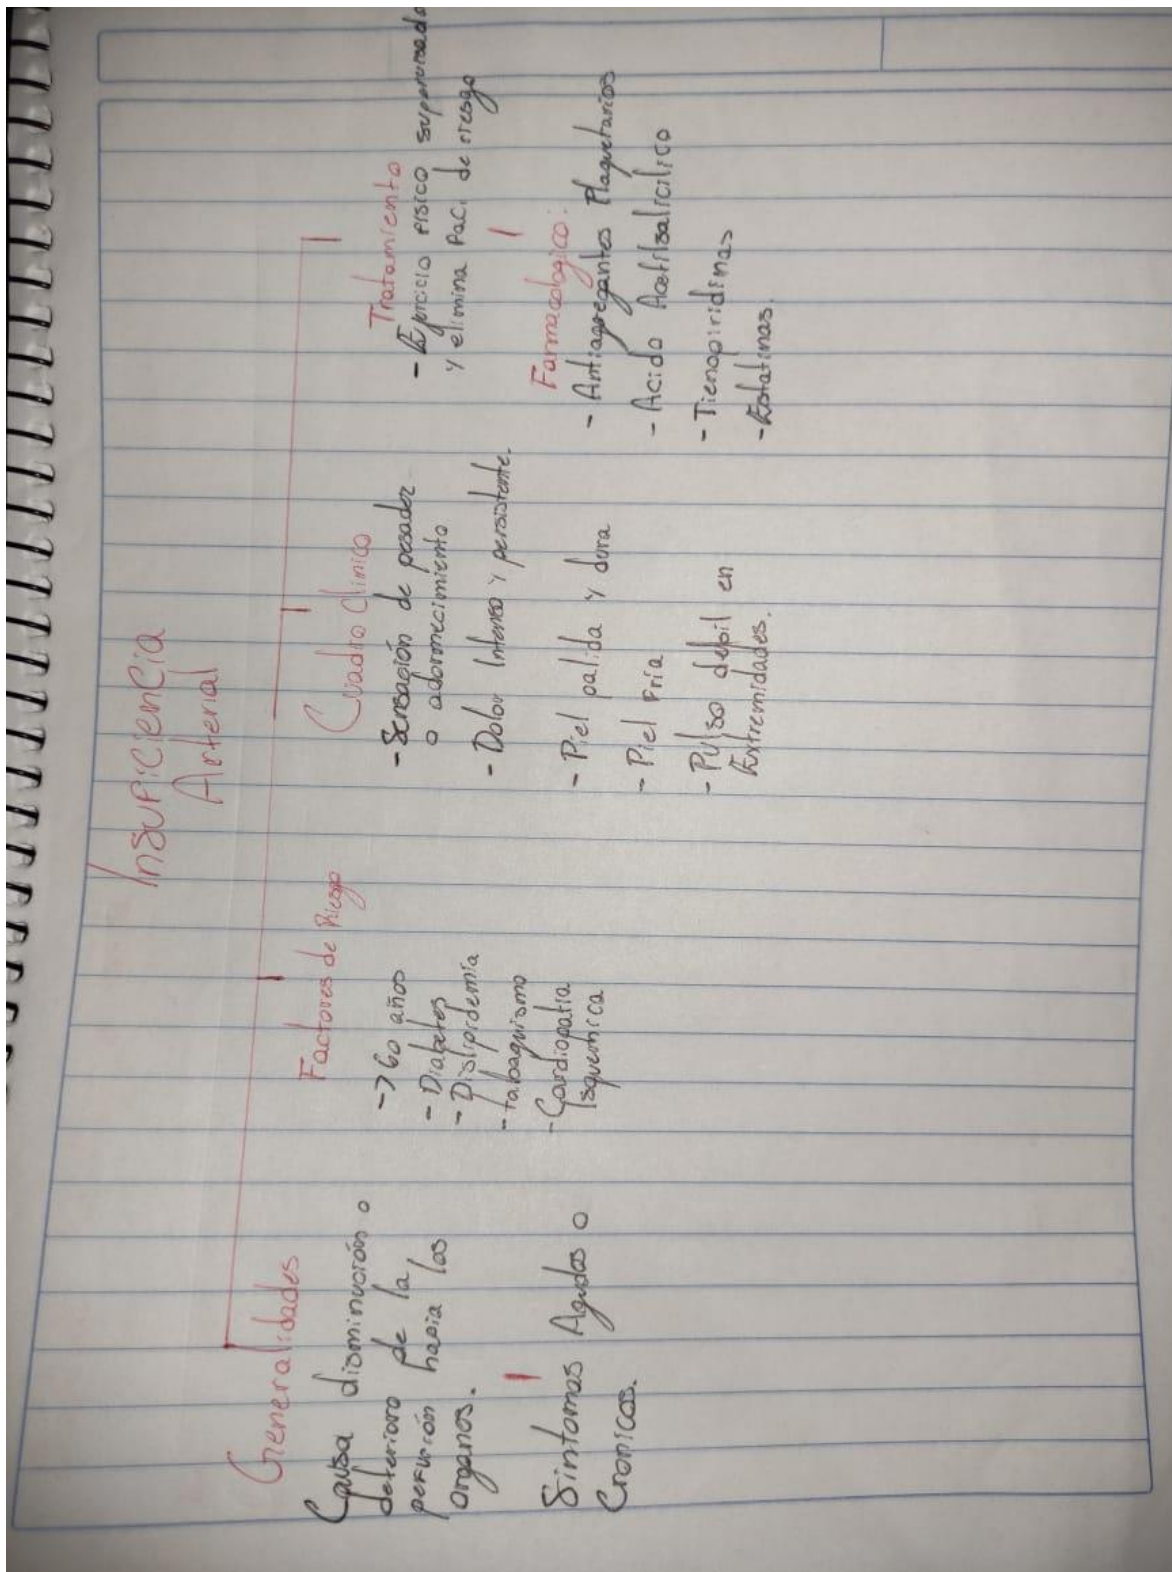 Insuficiencia
Arterial
Generalidades
Causa disminución o
deterioro de la
perfución hacia los
Organos.
Sintomas Agudos o
Cronicos.
Factores de Riesgo
->60 años
- Diabetes
- Dislipidemia
- tabaquismo
- Cardiopatia
Isquemica
Cuadro Clinico
- Sensación de pesadez
o adormecimiento
- Dolor Intenso y persistente.
- Piel palida y dura
- Piel Fría
- Pulso debil en
Extremidades.
Tratamiento
- Ejercicio Fisico supervisado
y elimina Fac. de riesgo
Farmacologico:
- Antiagregantes Plaquetarios
- Acido Acetilsalicilico
- Tienopiridinas
- Estatinas.